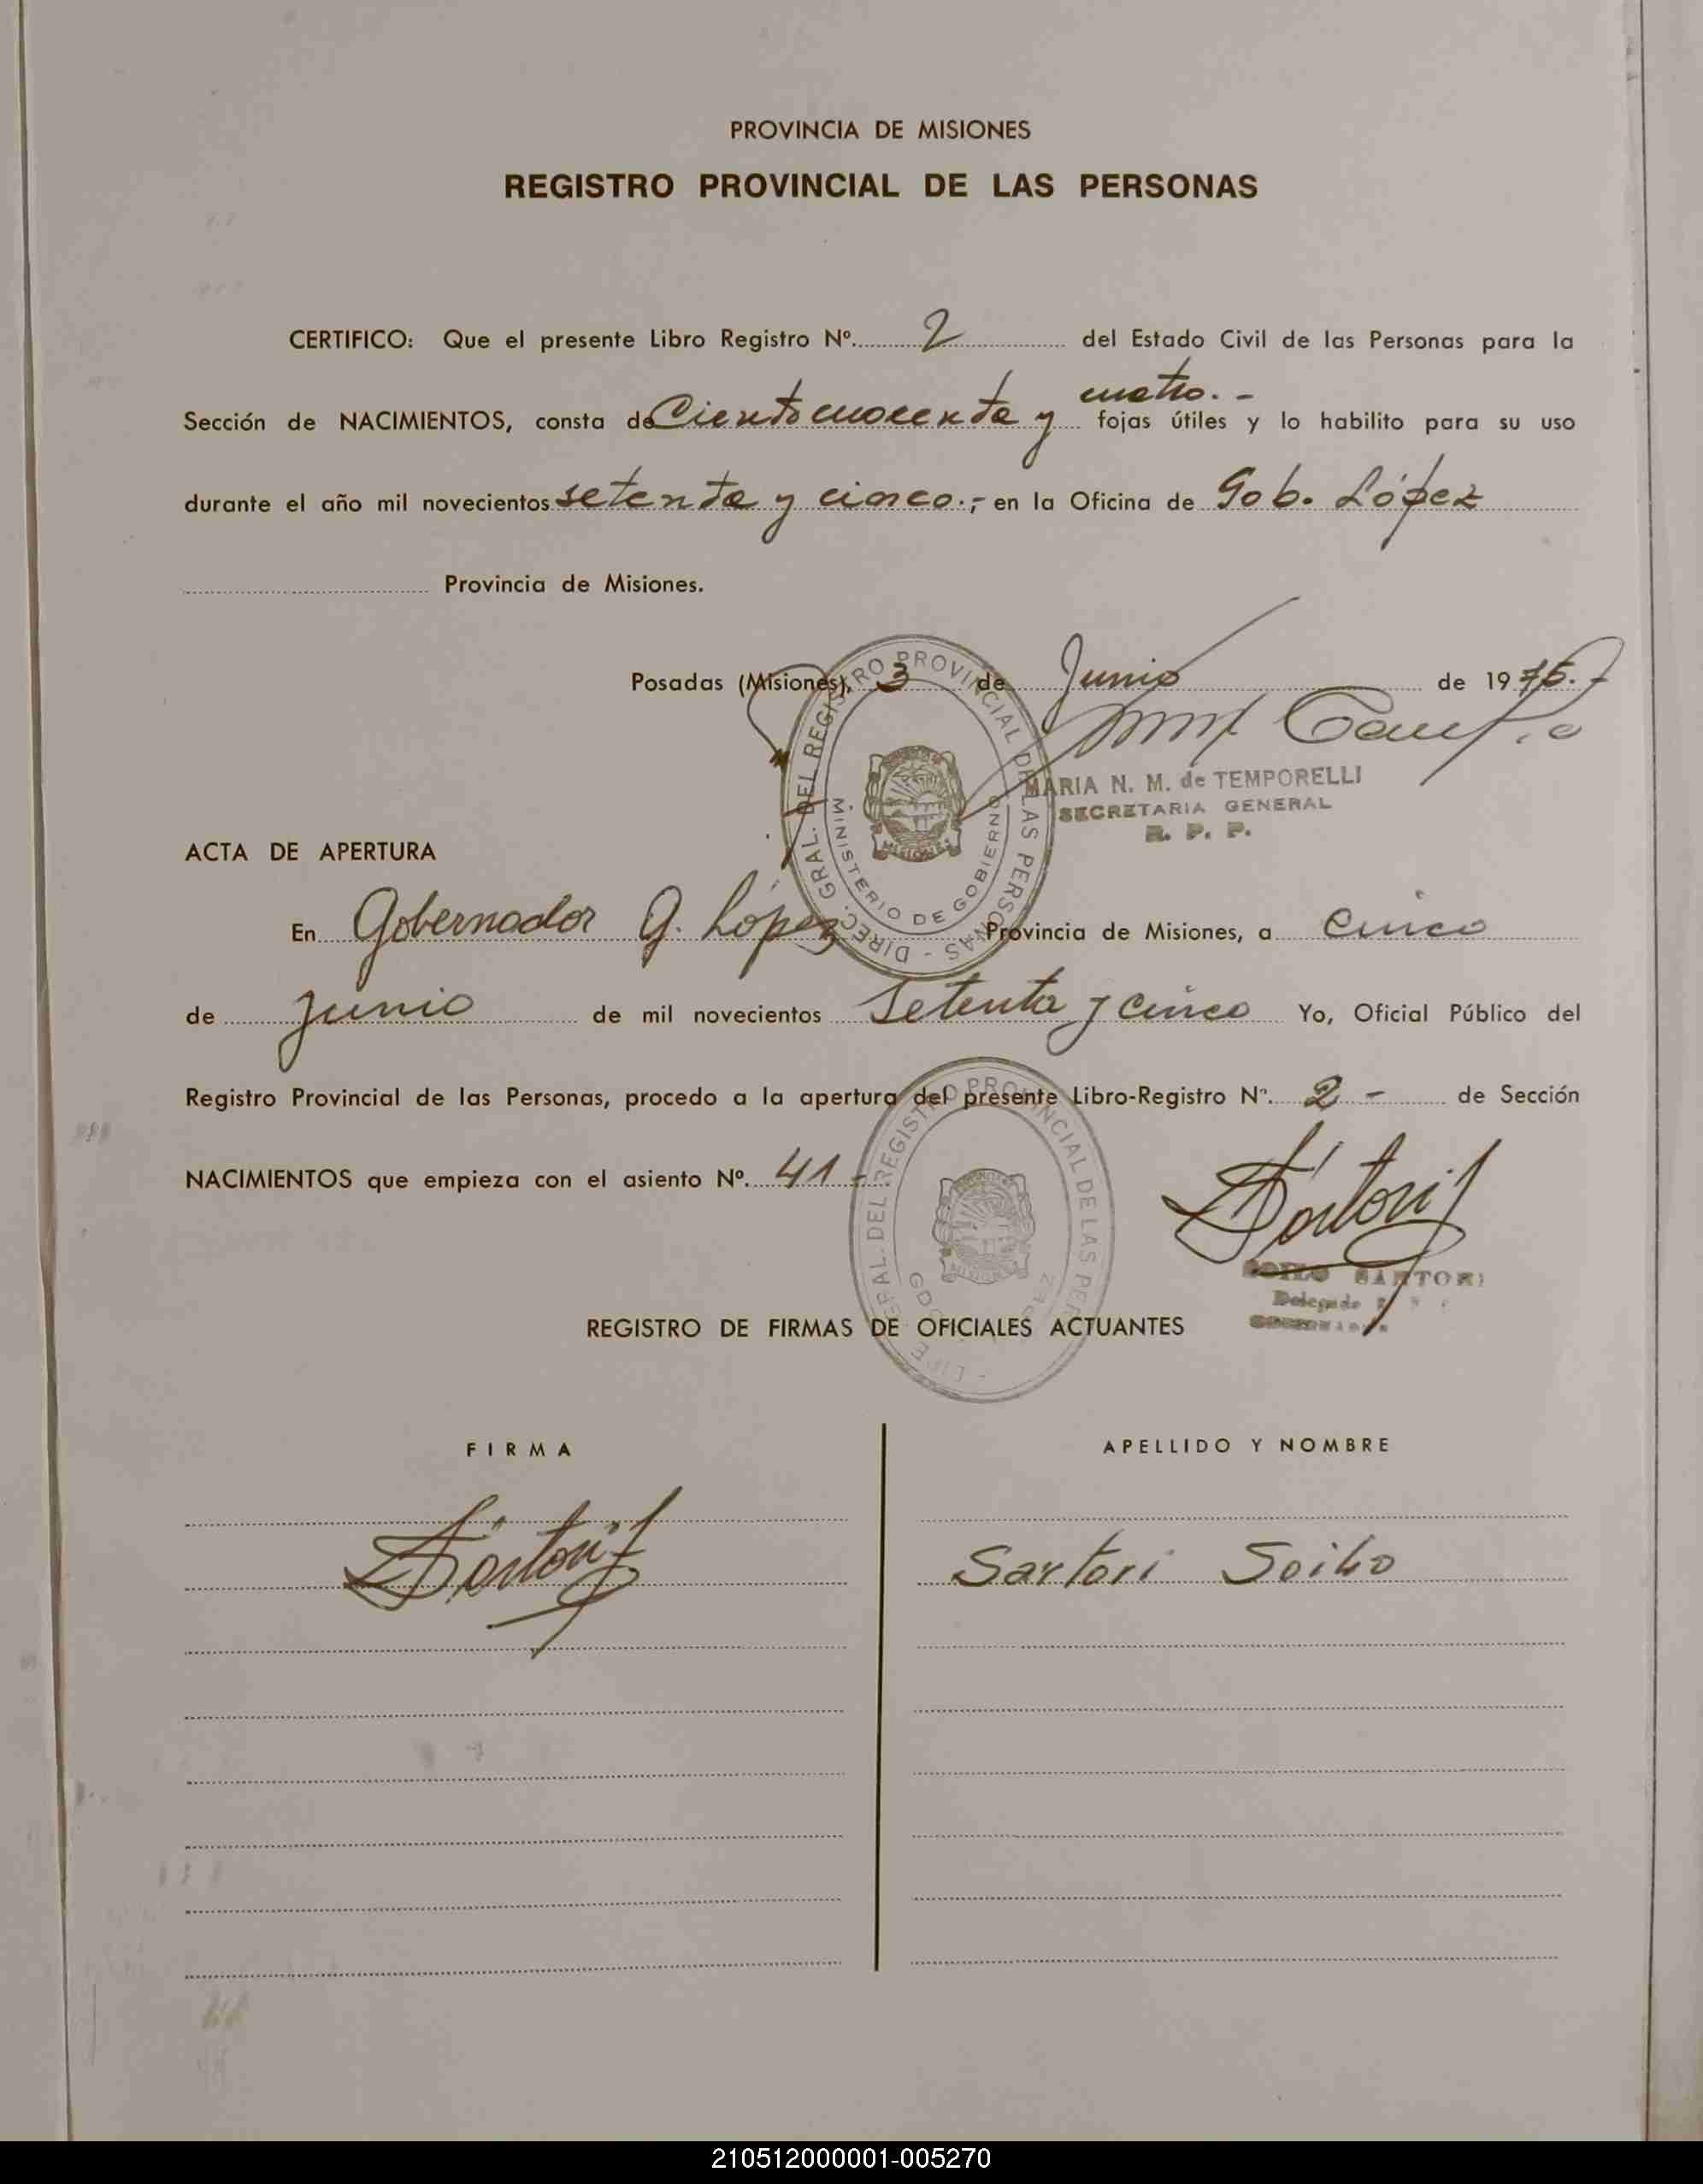 PROVINCIA DE MISIONES
REGISTRO PROVINCIAL DE LAS PERSONAS
CERTIFICO: Que el presente Libro Registro Nº. 2 del Estado Civil de las Personas para la
cuatro.-
Sección de NACIMIENTOS, consta de Ciento noventa y fojas útiles y lo habilito para su uso
durante el año mil novecientos setenta y cinco.- en la Oficina de Gob. López
Provincia de Misiones.
Posadas (Misiones), 3 de Junio de 1975.-
MARIA N. M. de TEMPORELLI
SECRETARIA GENERAL
R. P. P.
DIREC. GRAL. DEL REGISTRO PROVINCIAL DE LAS PERSONAS -
MINISTERIO DE GOBIERNO
MISIONES
ACTA DE APERTURA
En Gobernador G. López Provincia de Misiones, a cinco
de Junio de mil novecientos Setenta y cinco Yo, Oficial Público del
Registro Provincial de las Personas, procedo a la apertura del presente Libro-Registro Nº. 2 - de Sección
NACIMIENTOS que empieza con el asiento Nº. 41 -
Sartori
SARTORI
Delegado
DEL REGISTRO PROVINCIAL DE LAS PER
MISIONES
REGISTRO DE FIRMAS DE OFICIALES ACTUANTES
FIRMA APELLIDO Y NOMBRE
Sartori Sartori Soilo
210512000001-005270